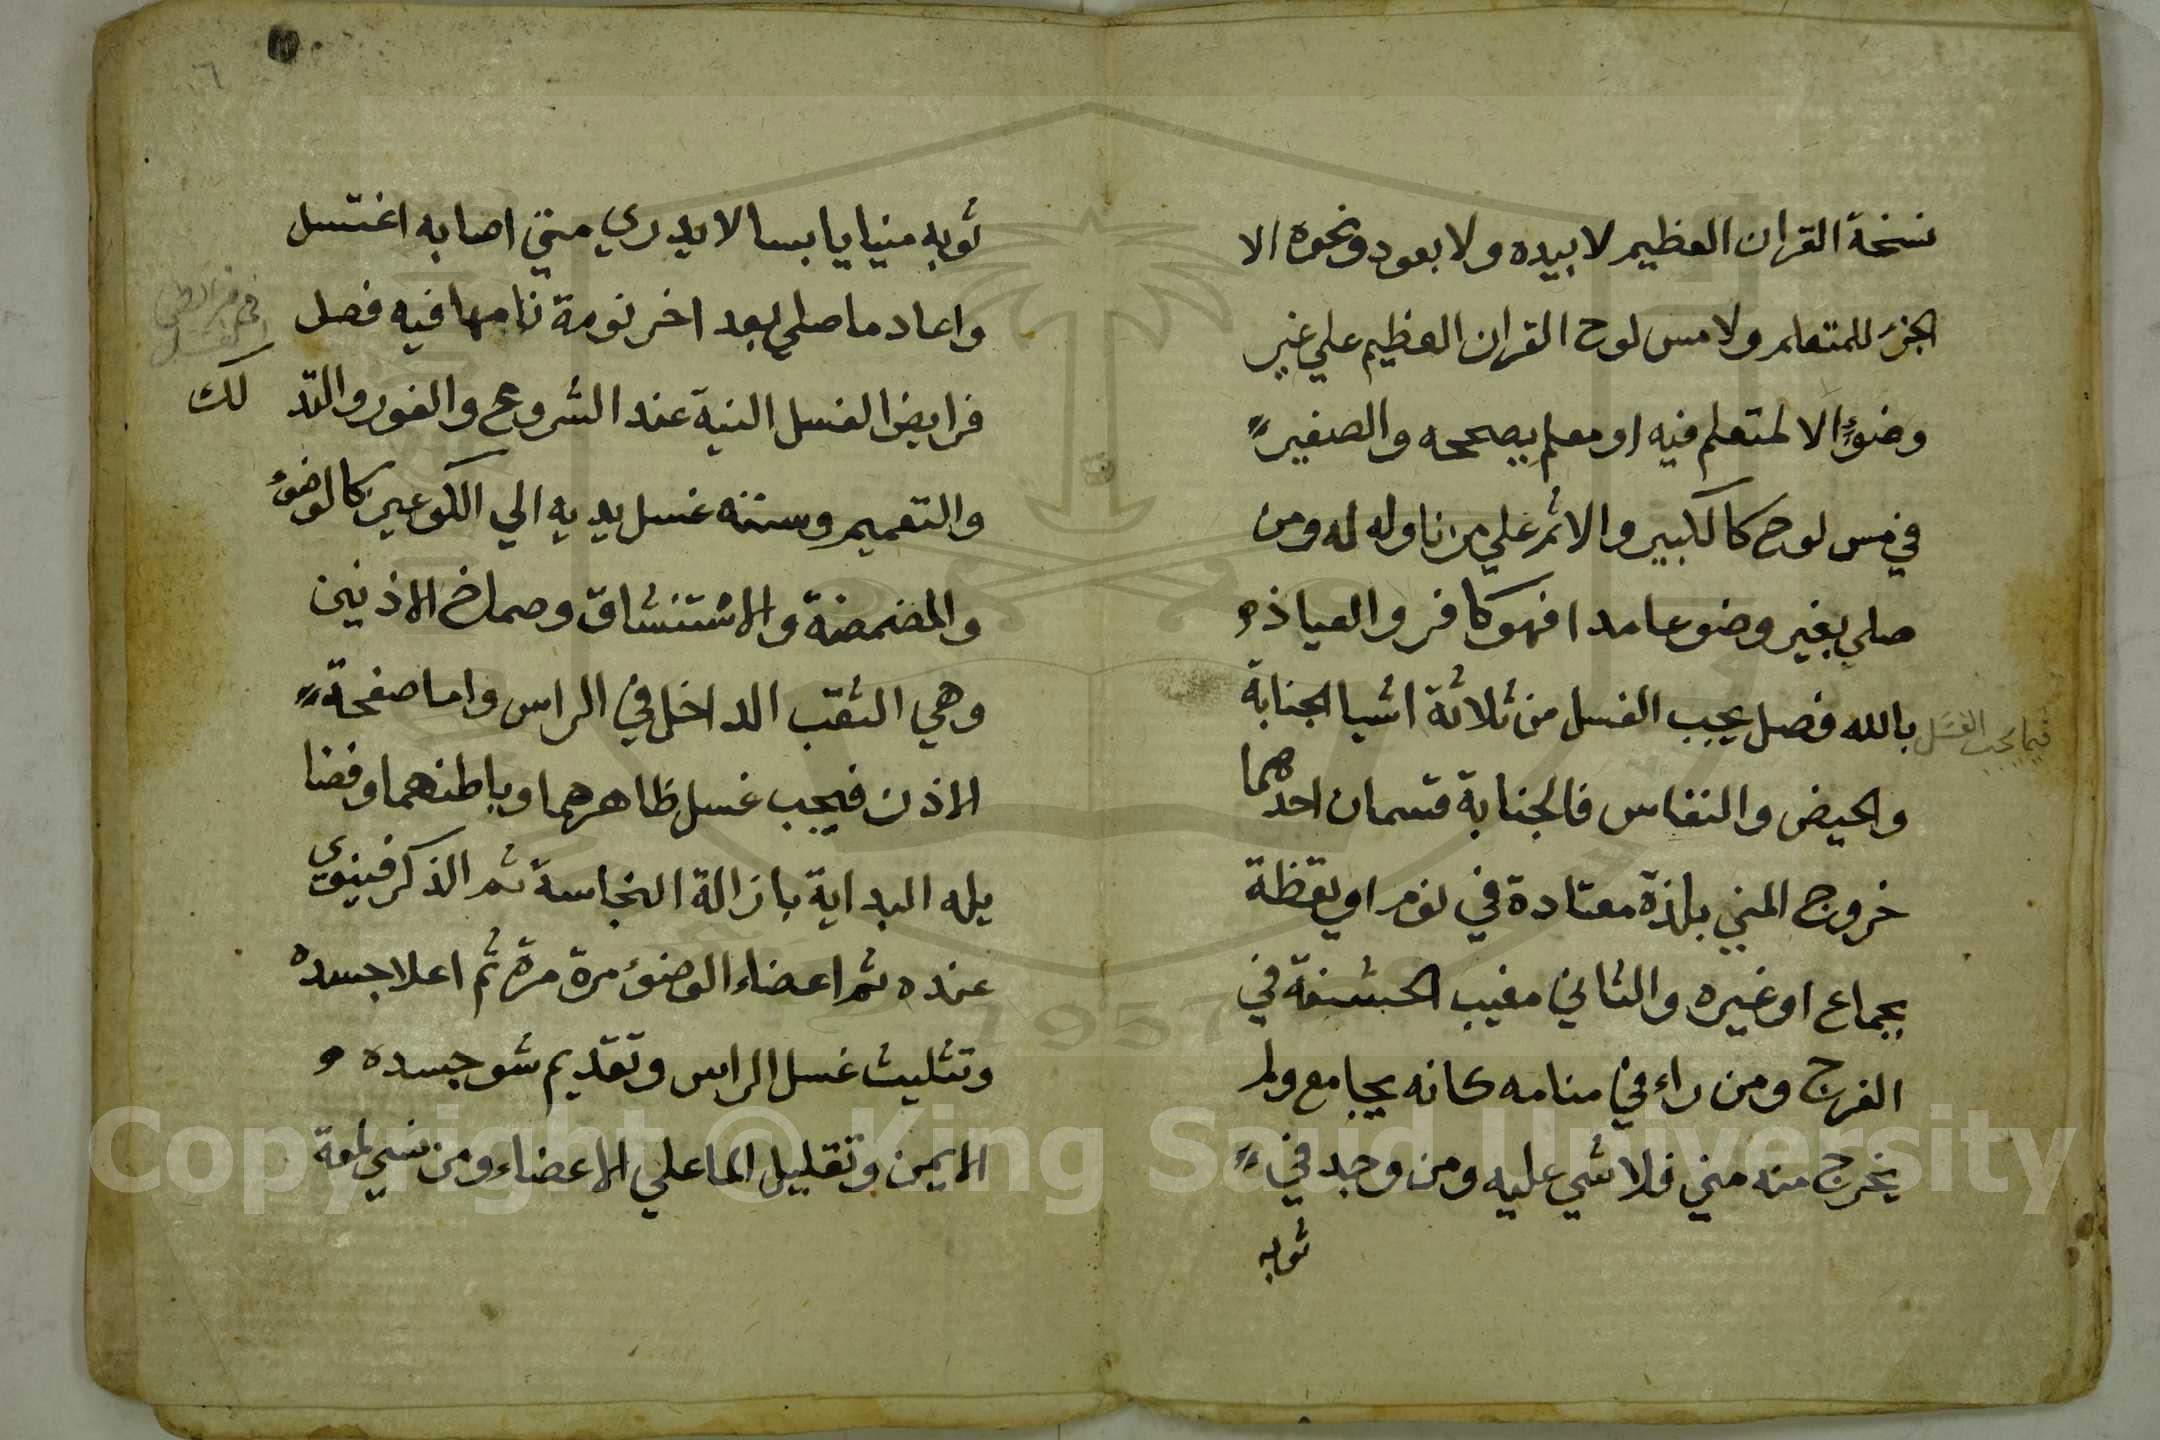 نسخة القران العظيم لا بيده ولا بعود ونحوه الا
الجزء للمتعلم ولا مس لوح القران العظيم علي غير
وضوءٍ الا لمتعلم فيه او معلم يصححه والصغير
في مس لوح كالكبير والاثم علي من ناوله له ومن
صلي بغير وضو عامدا فهو كافر والعياذ
بالله فصل يجب الغسل من ثلاثة اشيا الجنابة
فيما يجب الغسل
والحيض والنفاس فالجنابة قسمان احدهما
خروج المني بلذة معتادة في نوم او يقظة
بجماع او غيره والثاني مغيب الحشفة في
الفرج ومن راء في منامه كانه يجامع ولم
يخرج منه مني فلا شي عليه ومن وجد في
ثوبه
٦
ثوبه منيا يابسا لا يدري متي اصابه اغتسل
واعاد ما صلي بعد اخر نومة نامها فيه فصل
الغسل
فرايض الغسل النية عند الشروع والفور والتد لك
والتعميم وسننه غسل يديه الي الكوعين كالوضوء
والمضمضة والاستنشاق وصماخ الاذنين
وهي الثقب الداخل في الراس واما صفحة
الاذن فيجب غسل ظاهرهما وباطنهما وفضا
يله البداية بازالة النجاسة ثم الذكر فينوي
عنده ثم اعضاء الوضوء مرة مرة ثم اعلا جسده
وتثليث غسل الراس وتقديم شو جسده
الايمن وتقليل الما علي الاعضاء ومن نسي لمعة
1957
Copyright © King Saud University